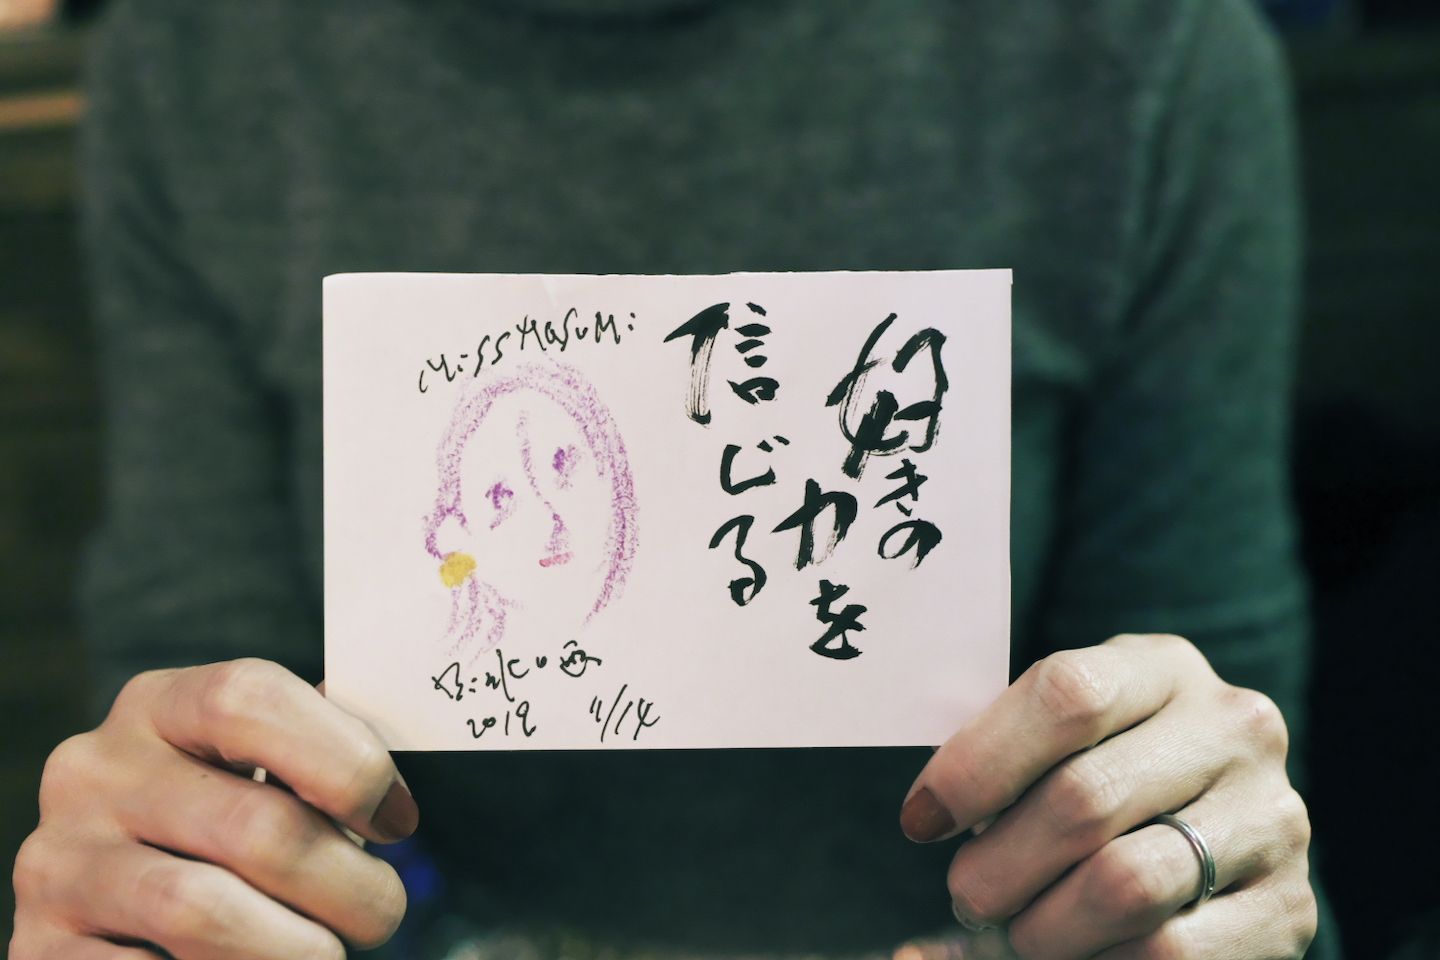 好きの
力を
信じる
Miss MASUMi
2019 11/14